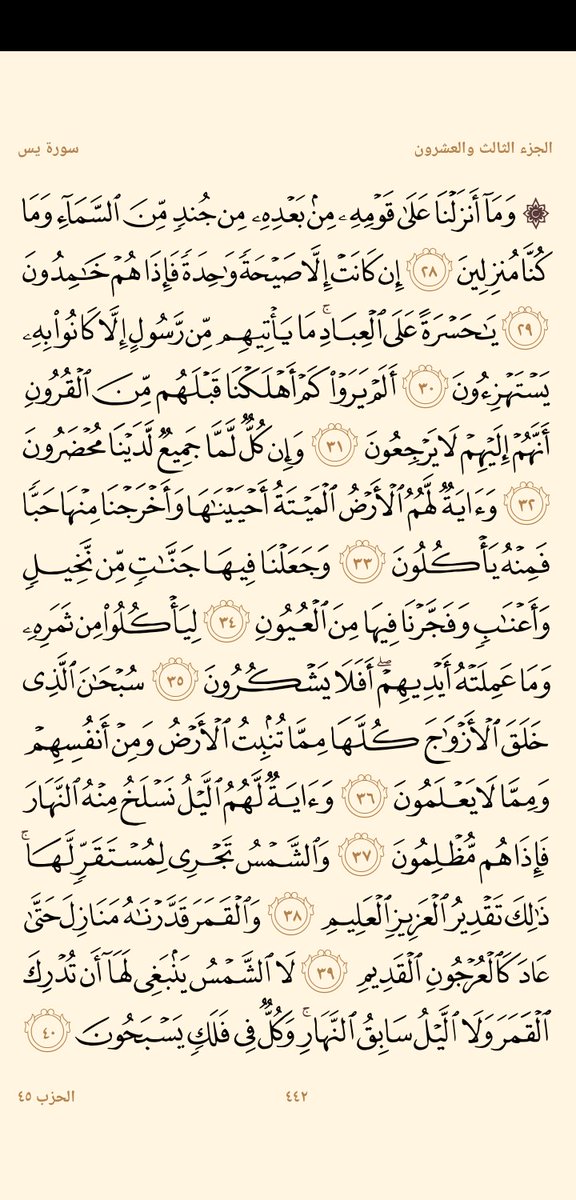 الجزء الثالث والعشرون
سورة يس
۞ وَمَآ أَنزَلْنَا عَلَىٰ قَوْمِهِۦ مِنۢ بَعْدِهِۦ مِن جُندٍ مِّنَ ٱلسَّمَآءِ وَمَا
كُنَّا مُنزِلِينَ ٢٨ إِن كَانَتْ إِلَّا صَيْحَةً وَٰحِدَةً فَإِذَا هُمْ خَٰمِدُونَ
٢٩ يَٰحَسْرَةً عَلَى ٱلْعِبَادِ ۚ مَا يَأْتِيهِم مِّن رَّسُولٍ إِلَّا كَانُوا۟ بِهِۦ
يَسْتَهْزِءُونَ ٣٠ أَلَمْ يَرَوْا۟ كَمْ أَهْلَكْنَا قَبْلَهُم مِّنَ ٱلْقُرُونِ
أَنَّهُمْ إِلَيْهِمْ لَا يَرْجِعُونَ ٣١ وَإِن كُلٌّ لَّمَّا جَمِيعٌ لَّدَيْنَا مُحْضَرُونَ
٣٢ وَءَايَةٌ لَّهُمُ ٱلْأَرْضُ ٱلْمَيْتَةُ أَحْيَيْنَٰهَا وَأَخْرَجْنَا مِنْهَا حَبًّا
فَمِنْهُ يَأْكُلُونَ ٣٣ وَجَعَلْنَا فِيهَا جَنَّٰتٍ مِّن نَّخِيلٍ
وَأَعْنَٰبٍ وَفَجَّرْنَا فِيهَا مِنَ ٱلْعُيُونِ ٣٤ لِيَأْكُلُوا۟ مِن ثَمَرِهِۦ
وَمَا عَمِلَتْهُ أَيْدِيهِمْ ۖ أَفَلَا يَشْكُرُونَ ٣٥ سُبْحَٰنَ ٱلَّذِى
خَلَقَ ٱلْأَزْوَٰجَ كُلَّهَا مِمَّا تُنۢبِتُ ٱلْأَرْضُ وَمِنْ أَنفُسِهِمْ
وَمِمَّا لَا يَعْلَمُونَ ٣٦ وَءَايَةٌ لَّهُمُ ٱلَّيْلُ نَسْلَخُ مِنْهُ ٱلنَّهَارَ
فَإِذَا هُم مُّظْلِمُونَ ٣٧ وَٱلشَّمْسُ تَجْرِى لِمُسْتَقَرٍّ لَّهَا ۚ
ذَٰلِكَ تَقْدِيرُ ٱلْعَزِيزِ ٱلْعَلِيمِ ٣٨ وَٱلْقَمَرَ قَدَّرْنَٰهُ مَنَازِلَ حَتَّىٰ
عَادَ كَٱلْعُرْجُونِ ٱلْقَدِيمِ ٣٩ لَا ٱلشَّمْسُ يَنۢبَغِى لَهَآ أَن تُدْرِكَ
ٱلْقَمَرَ وَلَا ٱلَّيْلُ سَابِقُ ٱلنَّهَارِ ۚ وَكُلٌّ فِى فَلَكٍ يَسْبَحُونَ ٤٠
٤٤٢
الحزب ٤٥